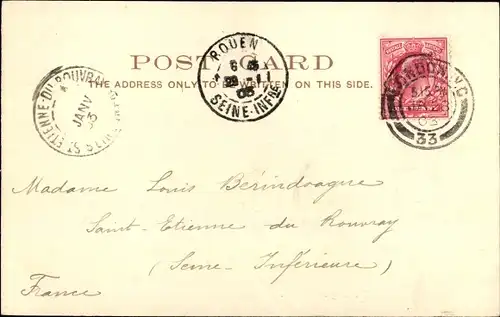 POST CARD
THE ADDRESS ONLY TO BE WRITTEN ON THIS SIDE.
ROUEN
SEINE-INFRE
ST ETIENNE-DU-ROUVRAY
JANV
LONDON. W.C
03
33
Madame Louis Bérindoague
Saint-Etienne du Rouvray
(Seine Inférieure)
France